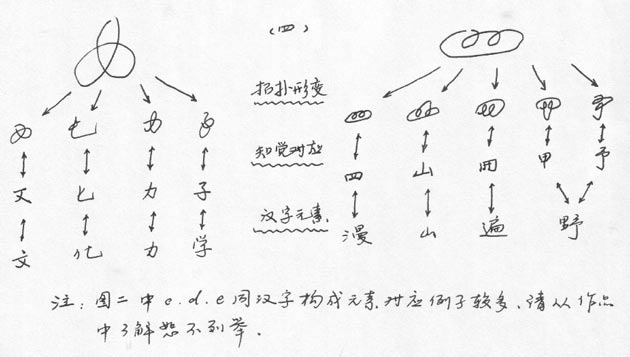 (四)
拓扑形变
知觉对应
四 山 田 甲 予
文 匕 力 子
汉字元素
文 化 力 学
漫 山 遍 野
注：图二中c.d.e同汉字构成元素对应例子较多、请从作品
中了解恕不列举.